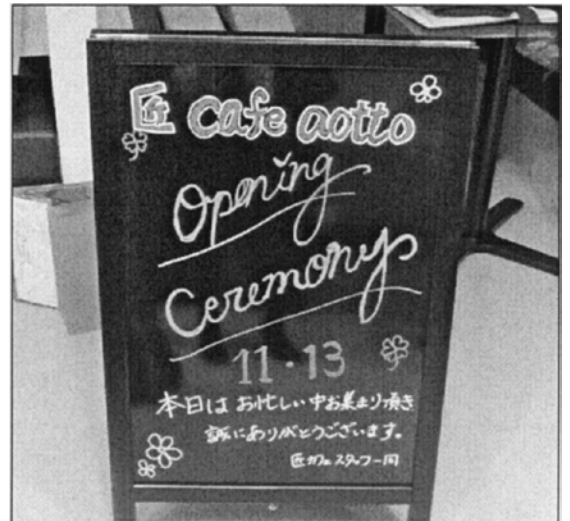 匠 cafe aotto
Opening
Ceremony
11・13
本日は お忙しい中お集まり頂き
誠にありがとうございます。
匠カフェスタッフ一同